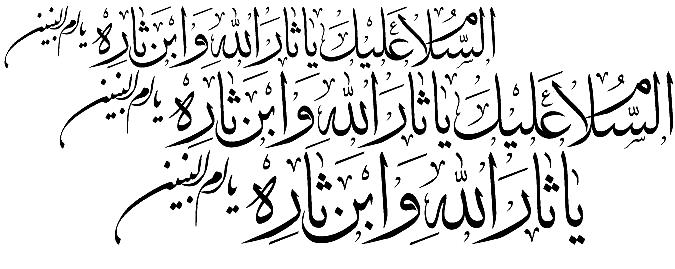 السَّلامُ عَلَيْكَ يا ثارَ اللهِ وَابْنَ ثارِهِ يا ام البنين
السَّلامُ عَلَيْكَ يا ثارَ اللهِ وَابْنَ ثارِهِ يا ام البنين
يا ثارَ اللهِ وَابْنَ ثارِهِ يا ام البنين